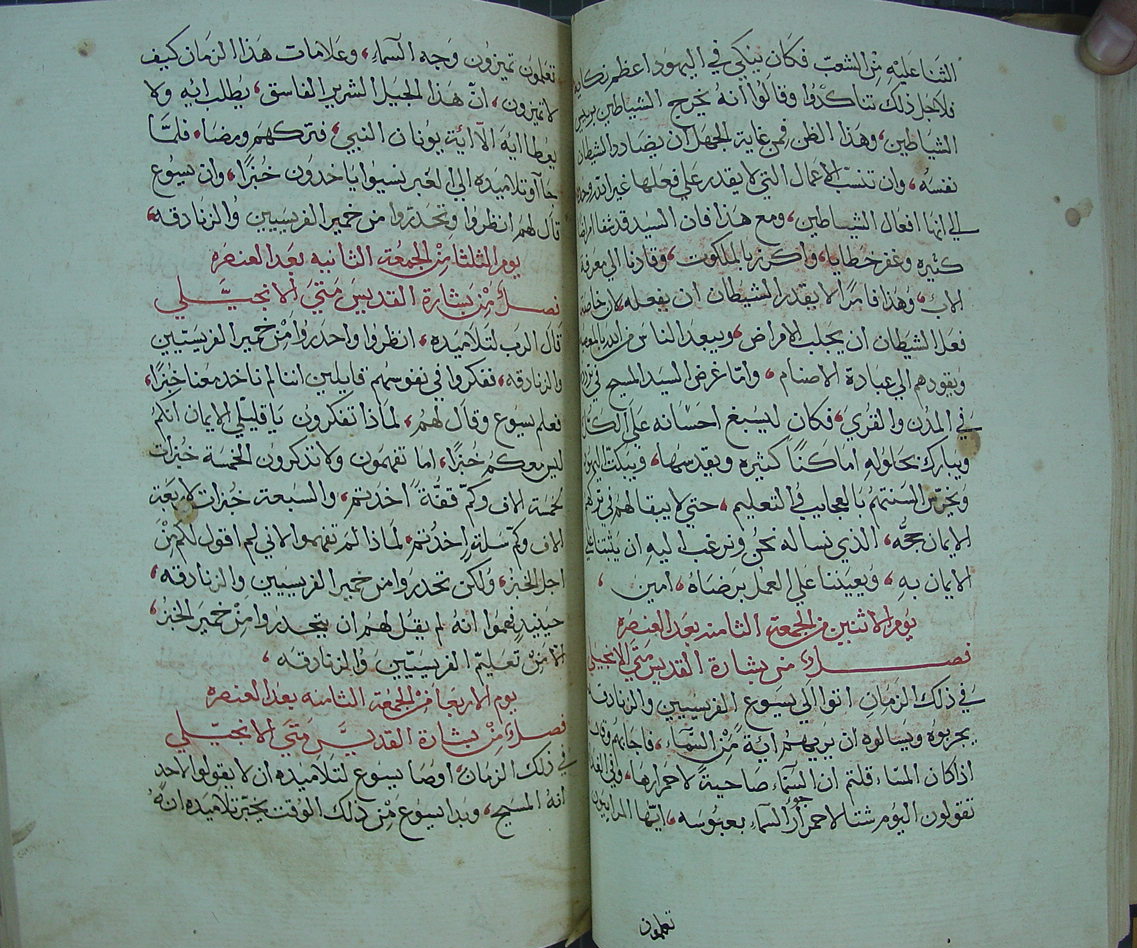 الثنا عليه من الشعب فكان ينكي في اليهود اعظم نكايه
فلاجل ذلك تناكدوا وقالوا انه يخرج الشياطين برييس
الشياطين، وهذا الظن فمن غاية الجهل ان يضادد الشيطان
نفسه، وان تنسب الاعمال التي لا يقدر علي فعلها غير الله وحده
الي انها افعال الشياطين، ومع هذا فان السيد قد شفا امراضا
كثيره وغفر خطايا، واكرز بالملكوت، وقادنا الي معرفة
الاب، وهذا فامرا لا يقدر الشيطان ان يفعله لان خاصة
فعل الشيطان ان يجلب الامراض، ويبعد الناس من الله بالمعصيه
ويقودهم الي عبادة الاصنام، واما غرض السيد المسيح في
في المدن والقري، فكان ليسبغ احسانه علي الكل
ويبارك بحلوله اماكنًا كثيره ويقدسها، ويبكت اليهود
ويخرس السنتهم بالعجايب والتعليم، حتي لا يبقا لهم في تركهم
الايمان حجه، الذي نساله نحن ونرغب اليه ان يثبتنا علي
الايمان به، ويعيننا علي العمل برضاه، امين،
يوم الاثنين من الجمعة الثامنه بعد العنصره
فصل من بشارة القديس متي الانجيلي
في ذلك الزمان اتوا الي يسوع الفريسيين والزنادقه
يجربوه ويسالوه ان يريهم اية من السماء، فاجابهم وقال
اذا كان المساء قلتم ان السماء صاحية لاحمرارها، وفي الغداه
تقولون اليوم شتا لاحمرار السماء بعبوسه، ايها المراييون
تعلمون
تعلمون تميزون وجه السماء، وعلامات هذا الزمان كيف
لا تميزون، ان هذا الجيل الشرير الفاسق، يطلب ايه ولا
يعطا ايه الا اية يونان النبي، فتركهم ومضا، فلما
جاآو تلاميذه الي العبر نسيوا ياخدون خبزًا، وان يسوع
قال لهم انظروا وتحدروا من خمير الفريسيين والزنادقه،
يوم الثلثا من الجمعة الثانيه بعد العنصره
فصل من بشارة القديس متي الانجيلي
قال الرب لتلاميده، انظروا واحدروا من خمير الفريسيين
والزنادقه، ففكروا في نفوسهم قايلين اننا لم ناخد معنا خبزًا،
فعلم يسوع وقال لهم، لماذا تفكرون يا قليلي الايمان انكم
ليس معكم خبزًا، اما تفهمون ولا تذكرون الخمسة خبزات
لخمسة الاف وكم قفة اخدتم، والسبعة خبزات لاربعة
الاف وكم سلة اخدتم، لماذا لم تفهموا لاني لم اقول لكم من
اجل الخبز، ولكن تحدروا من خمير الفريسيين والزنادقه،
حينيد فهموا انه لم يقل لهم ان يتحدروا من خمير الخبز،
الا من تعليم الفريسيين والزنادقه،
يوم الاربعا من الجمعة الثامنه بعد العنصره
فصل من بشارة القديس متي الانجيلي
في ذلك الزمان، اوصا يسوع لتلاميده ان لا يقولوا لاحد
انه المسيح، وبدا يسوع من ذلك الوقت يخبر تلاميده انه